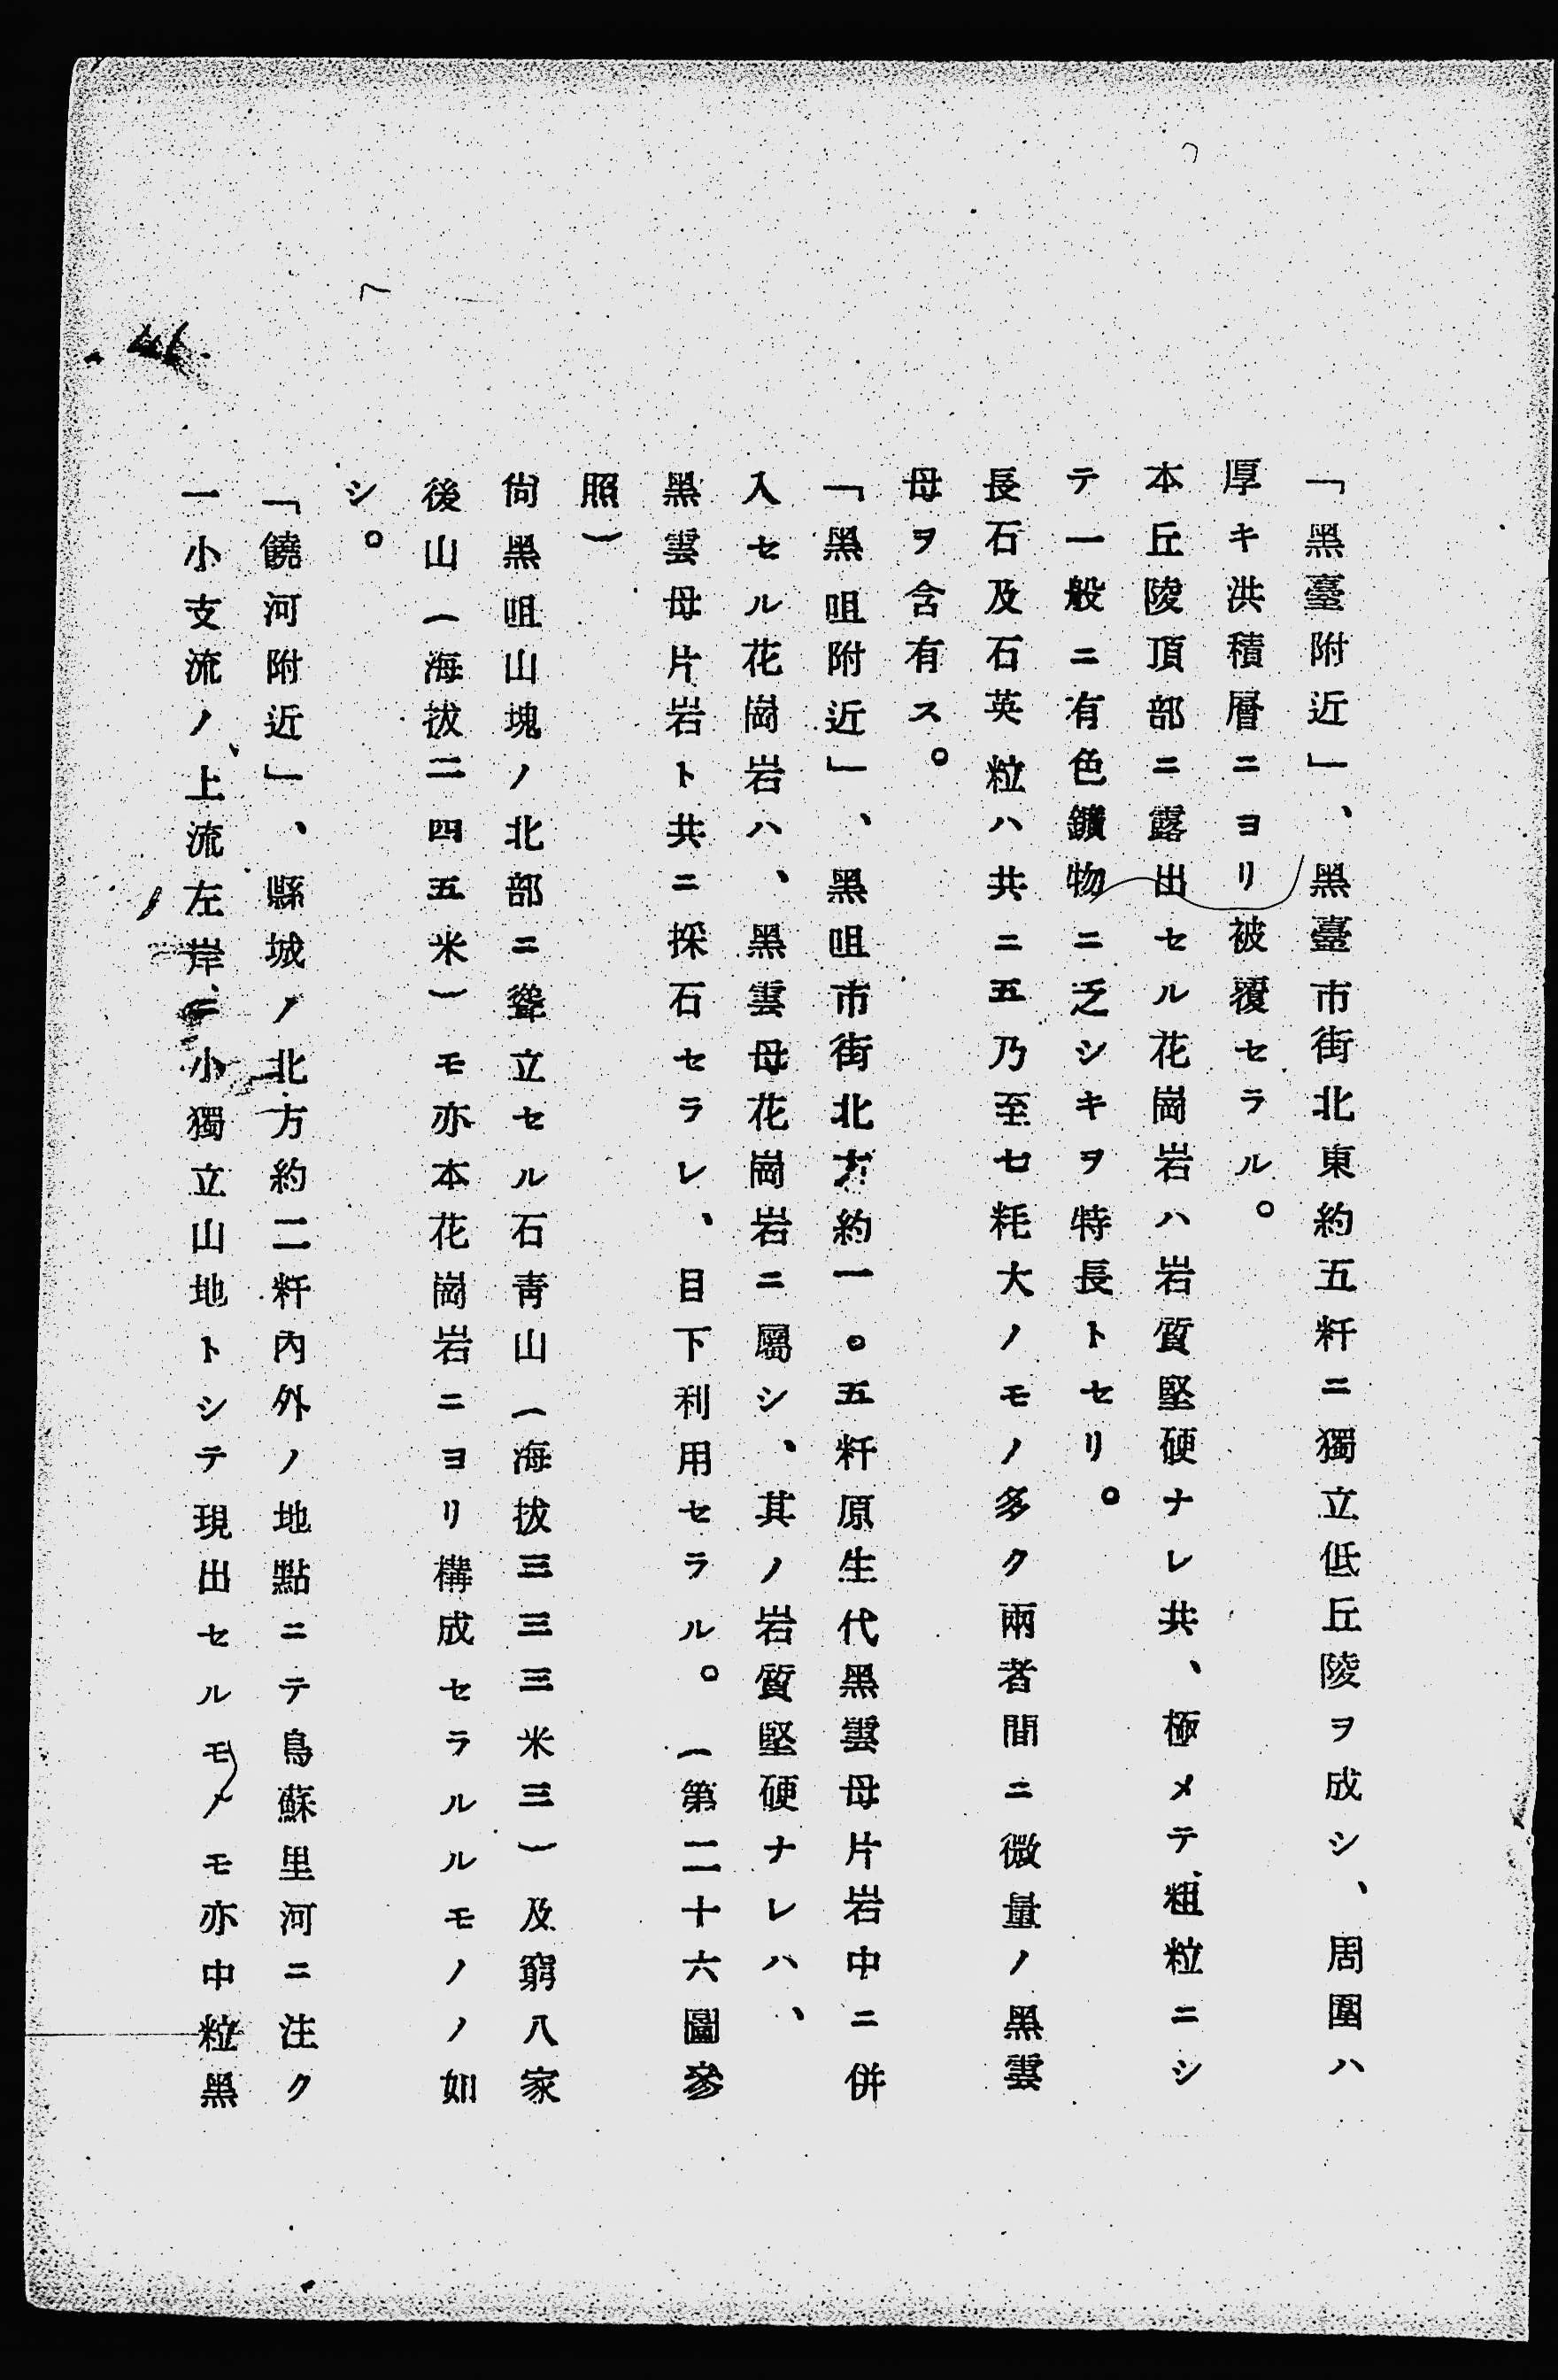 「黑臺附近」、黑臺市街北東約五粁ニ獨立低丘陵ヲ成シ、周圍ハ
厚キ洪積層ニヨリ被覆セラル。
本丘陵頂部ニ露出セル花崗岩ハ岩質堅硬ナレ共、極メテ粗粒ニシ
テ一般ニ有色鑛物ニ乏シキヲ特長トセリ。
長石及石英粒ハ共ニ五乃至七粍大ノモノ多ク兩者間ニ微量ノ黑雲
母ヲ含有ス。
「黑咀附近」、黑咀市街北方約一。五粁原生代黑雲母片岩中ニ併
入セル花崗岩ハ、黑雲母花崗岩ニ屬シ、其ノ岩質堅硬ナレハ、
黑雲母片岩ト共ニ採石セラレ、目下利用セラル。(第二十六圖參
照)
尙黑咀山塊ノ北部ニ聳立セル石靑山(海拔三三三米三)及窮八家
後山(海拔二四五米)モ亦本花崗岩ニヨリ構成セラルルモノノ如
シ。
「饒河附近」、縣城ノ北方約二粁內外ノ地點ニテ烏蘇里河ニ注ク
一小支流ノ上流左岸ニ小獨立山地トシテ現出セルモノモ亦中粒黑